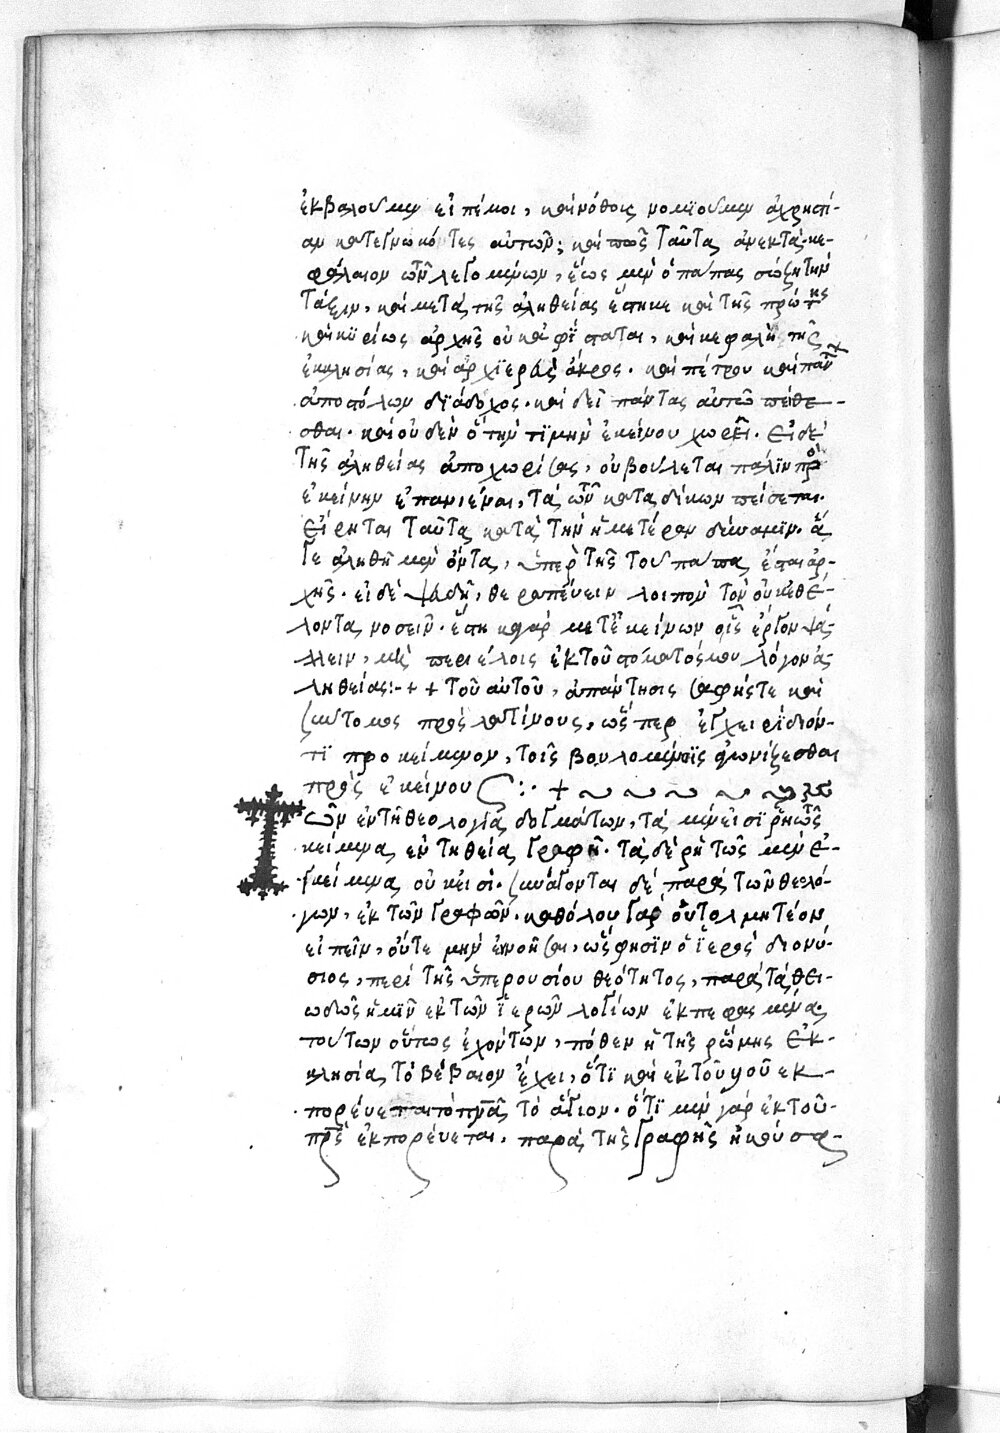 ἐκβαλοῦμεν εἰπέ μοι, καὶ νόθοις νομιοῦμεν ἀχρηστί-
αν κατεγνωκότες αὐτῶν; καὶ πῶς ταῦτα ἀνεκτά. κε-
φάλαιον οὖν λεγομένων, ἕως μὲν ὁ πάπας σώζη τὴν
τάξιν, καὶ μετὰ τῆς ἀληθείας ἕστηκε καὶ τῆς πρώτης
καὶ κυρίως ἀρχῆς οὐκ ἀφΐσταται, καὶ κεφαλὴ τῆς
ἐκκλησίας, καὶ ἀρχϊερεὺς ἄκρος. καὶ πέτρου καὶ πάντων
ἀποστόλων διάδοχος. καὶ δεῖ πάντας αὐτῶ πείθε-
σθαι. καὶ οὐδὲν ὃ τὴν τϊμὴν ἐκείνου χωρεῖ. εἰ δὲ
τῆς ἀληθείας ἀποχωρίσας, οὐ βούλεται πάλϊν πρὸς
ἐκείνην ἐπανιέναι, τὰ τῶν καταδίκων πείσεται.
εἴρηται ταῦτα κατὰ τὴν ἡμετέραν δύναμϊν. ἅ
γε ἀληθῆ μὲν ὄντα, ὑπὲρ τῆς τοῦ πάπα ἔσται ἀρ-
χῆς. εἰ δὲ ψευδῆ, θεραπεύειν λοιπὸν τὸν οὐκ ἐθέ-
λοντα νοσεῖν. ἔστη καὶ γὰρ μετ' ἐκείνων οἷς ἔργον ψάλ-
λειν, μὴ περιέλοις ἐκ τοῦ στόματός μου λόγον ἀ-
ληθείας:- + + τοῦ αὐτοῦ, ἀπάντησις σαφής τε καὶ
σύντομος πρὸς λατίνους, ὥσπερ ἐγχειρίδιόν
τϊ προκείμενον, τοῖς βουλομένοϊς ἀγωνίζεσθαι
πρὸς ἐκείνους :· +
Τῶν ἐν τῆ θεολογία δογμάτων, τὰ μέν εἰσϊ ῥητῶς
κείμενα ἐν τῆ θεία γραφῆ. τὰ δὲ ῥητῶς μὲν ἐ-
γκείμενα οὐκ εἰσί. συνάγονται δὲ παρὰ τῶν θεολό-
γων, ἐκ τῶν γραφῶν. καθόλου γὰρ οὐ τολμητέον
εἰπεῖν, οὔτε μὴν ἐννοῆσαι, ὥς φησϊν ὁ ἱερὸς διονύ-
σιος, περὶ τῆς ὑπερουσίου θεότητος, παρὰ τὰ θει-
ωδῶς ἡμῖν ἐκ τῶν ἱερῶν λογίων ἐκπεφασμένα.
τούτων οὕτως ἐχόντων, πόθεν ἡ τῆς ῥώμης ἐκ-
κλησία τὸ βέβαιον ἔχει, ὅτϊ καὶ ἐκ τοῦ υἱοῦ ἐκ-
πορεύεται τὸ πνᾶ τὸ ἅγιον. ὅτϊ μὲν γὰρ ἐκ τοῦ
πρς ἐκπορεύεται. παρὰ τῆς γραφῆς ἠκούσα-